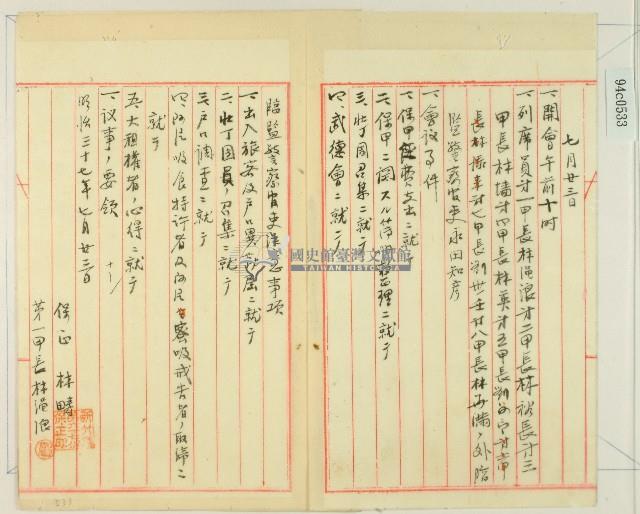 七月廿三日
一、開會午前十時
一、列席員第一甲長林滬浪第二甲長林裕長第三
甲長林墻第四甲長林英第五甲長
第七甲長 第八甲長林 外臨
監警察官吏永田知彥
一、會議事件
一、保甲經費支出ニ就テ
二、保甲ニ関スル簿冊整理ニ就テ
三、壯丁團召集ニ就テ
四、武德會ニ就テ
臨監警察官吏注意事項
一、出入旅客及戶口異動屆ニ就テ
二、壯丁團員ノ召集ニ就テ
三、戶口調查ニ就テ
四、阿片吸食特許者及阿片密吸戒告者ノ取締ニ
就テ
五、大租權者ノ心得ニ就テ
一、议事ノ要領
明治三十七年七月廿三日
保正 林疇
第一甲長林滬浪
國史館臺灣文獻館
TAIWAN HISTORICA
94c0533